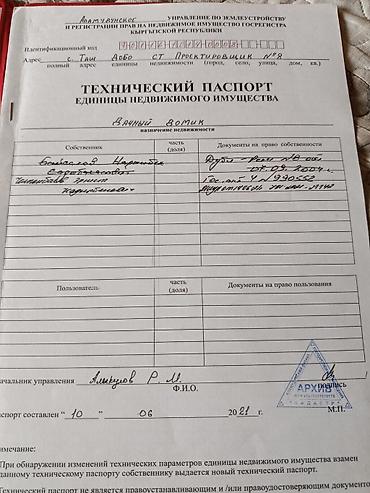 Аламудунское УПРАВЛЕНИЕ ПО ЗЕМЛЕУСТРОЙСТВУ
И РЕГИСТРАЦИИ ПРАВ НА НЕДВИЖИМОЕ ИМУЩЕСТВО ГОСРЕГИСТРА
КЫРГЫЗСКОЙ РЕСПУБЛИКИ
Идентификационный код
Адрес с. Таш Добо СТ Проектировщик №
полный адрес единицы недвижимости (город, село, улица, дом, кв.)
ТЕХНИЧЕСКИЙ ПАСПОРТ
ЕДИНИЦЫ НЕДВИЖИМОГО ИМУЩЕСТВА
Дачный домик
назначение недвижимости
Собственник часть (доля) Документы на право собственности
07.09.2004г.
Гос.акт Ч № 990552
Пользователь часть (доля) Документы на право пользования
начальник управления Р. М.
Ф.И.О. подпись
АРХИВ
спорт составлен “ 10 ” 06 2021 г. М.П.
мечание:
При обнаружении изменений технических параметров единицы недвижимого имущества взамен
данному техническому паспорту собственнику выдается новый технический паспорт.
Технический паспорт не является правоустанавливающим и /или правоудостоверяющим доку